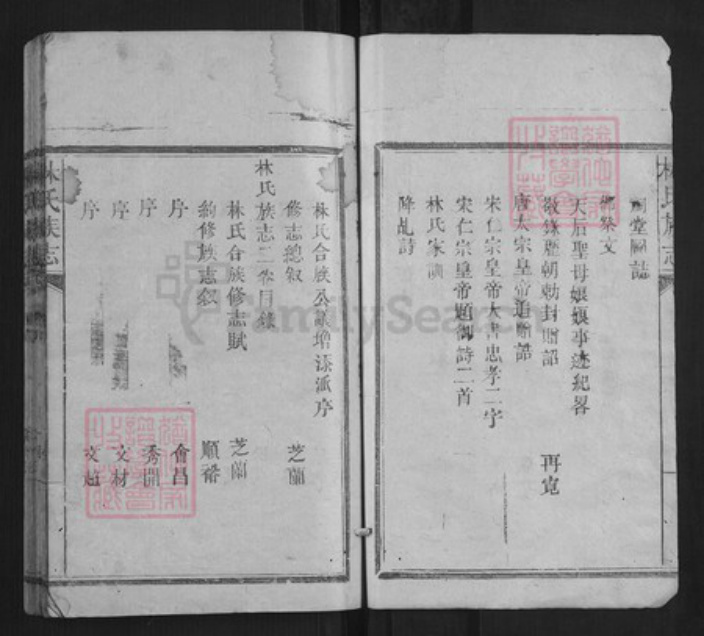 林氏族志
祠堂圖誌
鄉祭文
天后聖母娘娘事迹紀畧
敬錄歷朝勅封贈詔 再寬
唐太宗皇帝追贈誥
宋仁宗皇帝大書忠孝二字
宋仁宗皇帝題御詩二首
林氏家
降乱詩
林氏合族公議增添派序
修志總叙 芝蘭
林氏族志二卷目錄
林氏合族修志賦 芝蘭
約修族志叙 順裕
序 會昌
序 秀開
序 文材
序 文超
林氏族志
FamilySearch